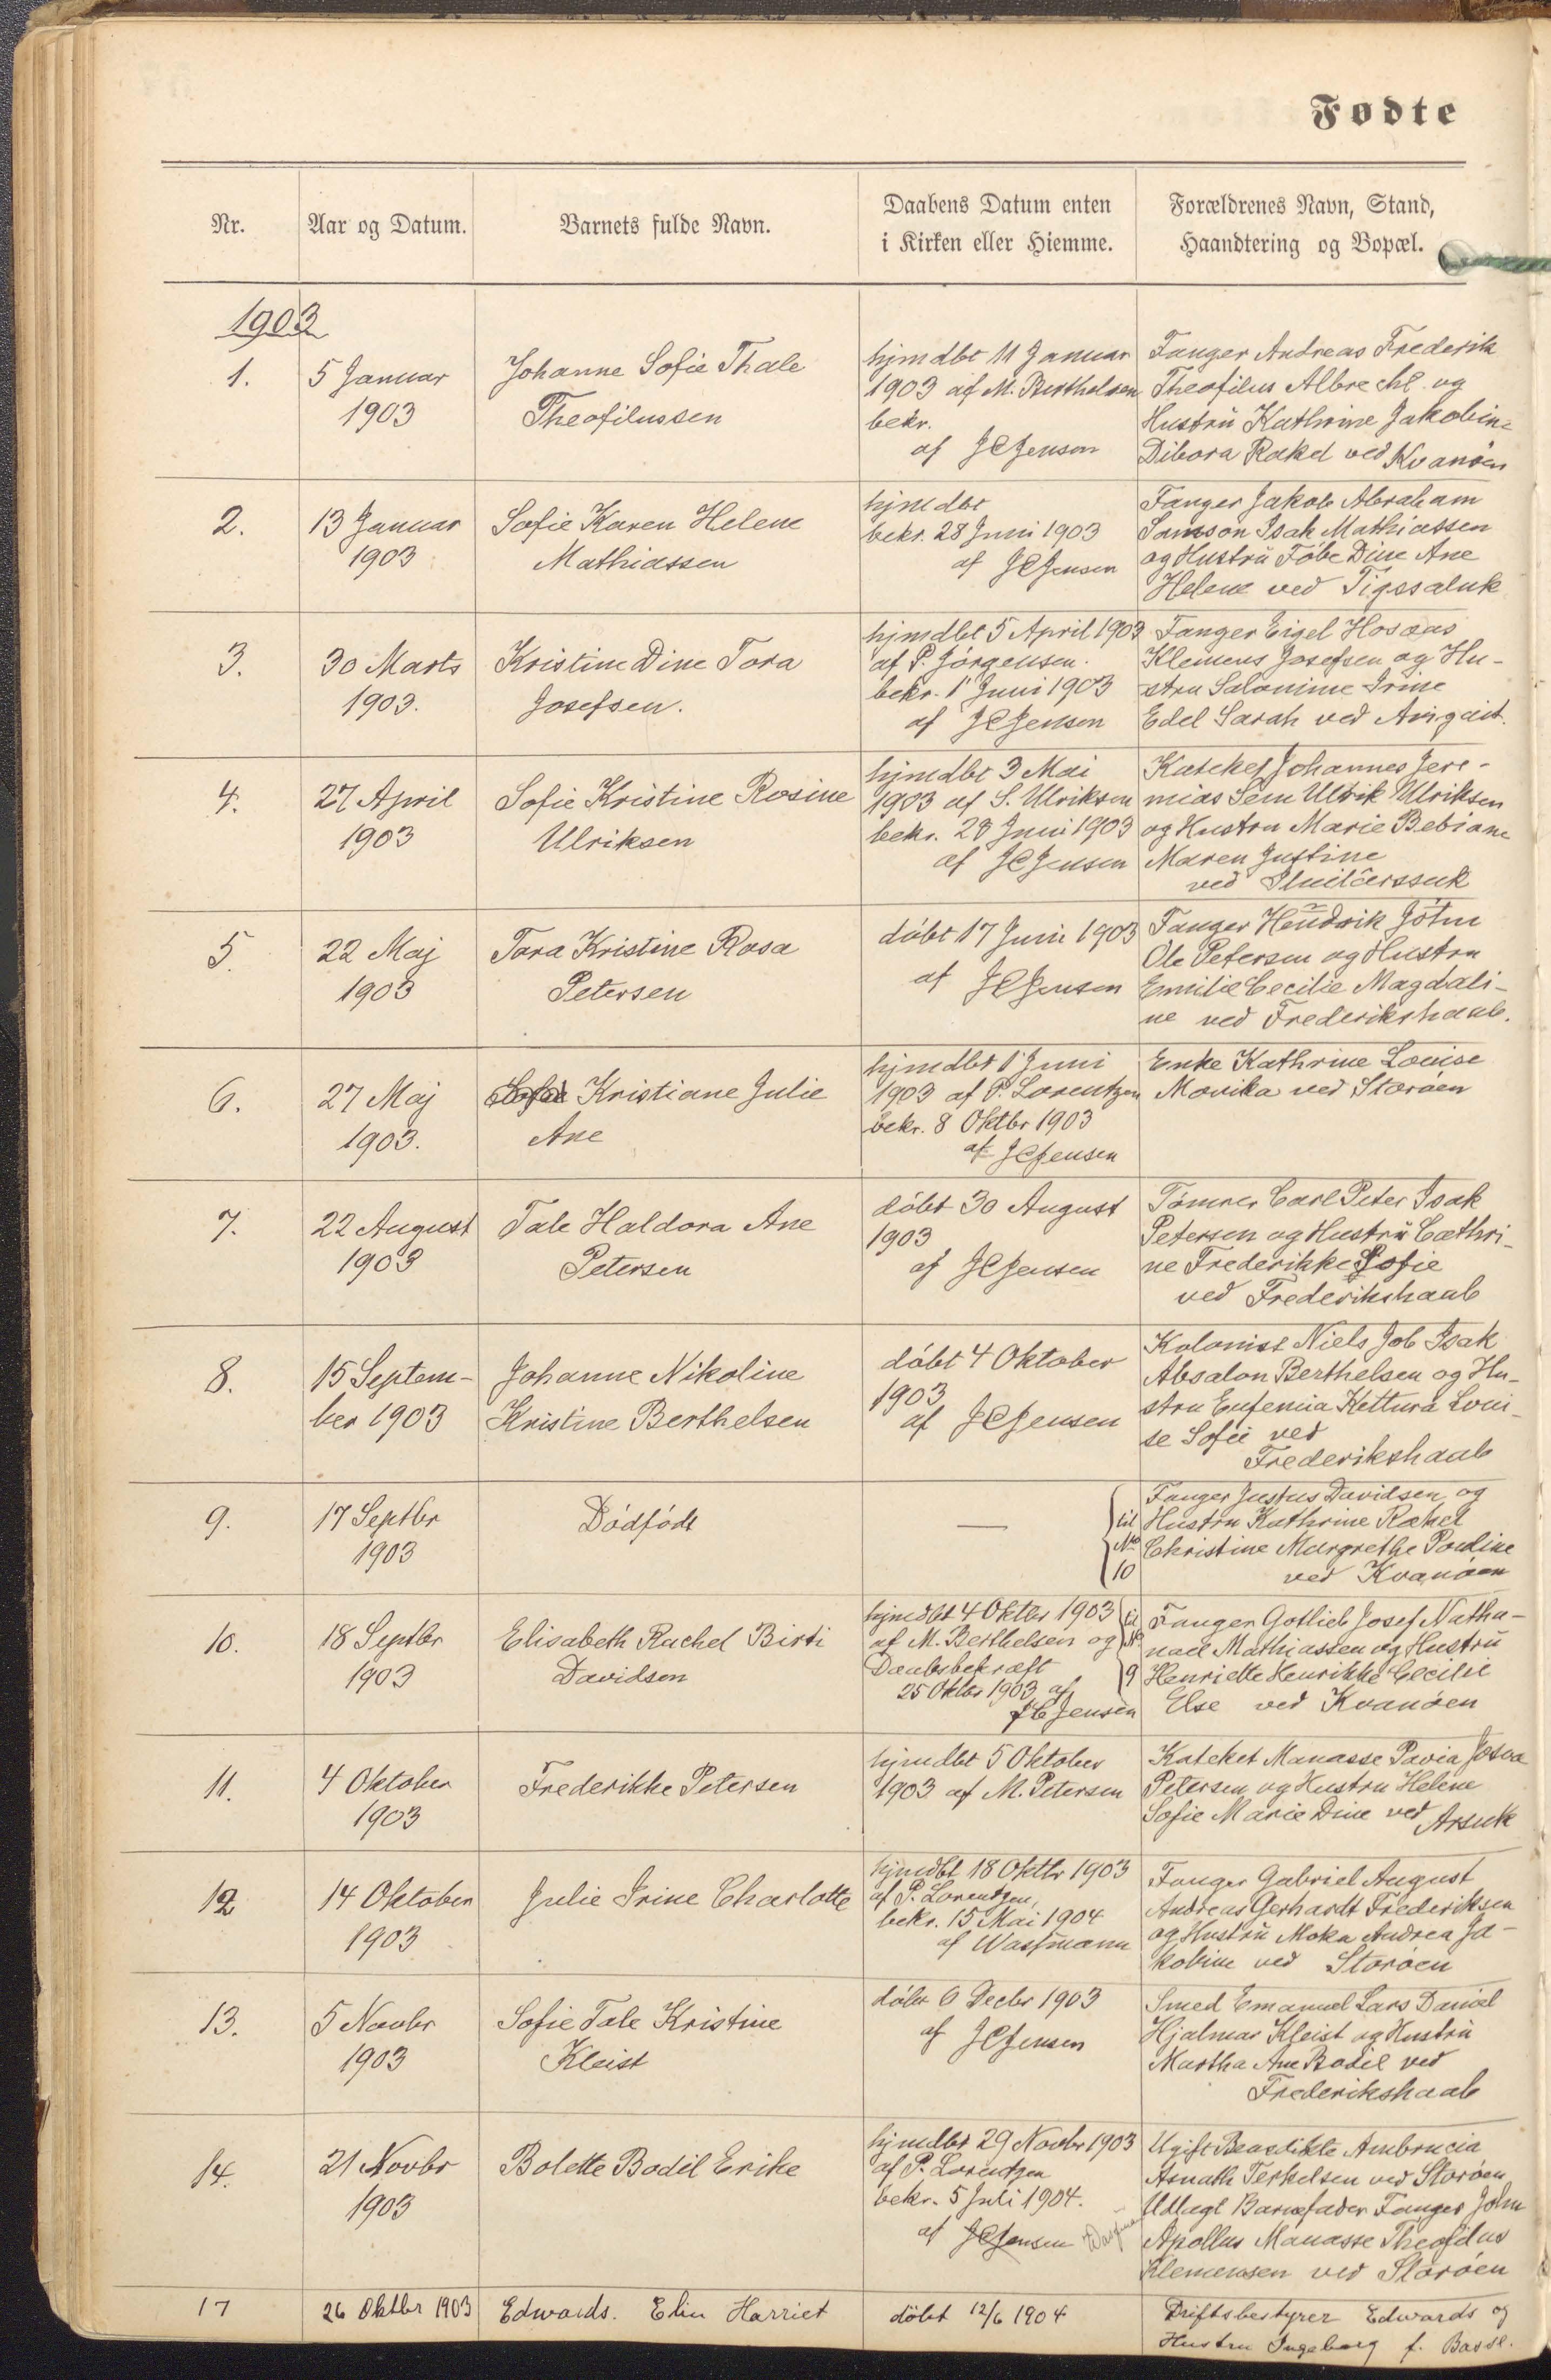 Fødte
Nr.
Aar og Datum.
Barnets fulde Navn.
Daabens Datum enten
i Kirken eller Hiemme.
Forældrenes Navn, Stand,
Haandtering og Bopæl.
1903
1.
5 Januar
1903
Johanne Sofie Thale
Theofilussen
hjmdbt 11 Januar
1903 af M. Berthelsen
bekr.
af JCJensen
Fanger Andreas Frederik
Theofilus Albrecht og
Hustru Kathrine Jakobine
Dibora Rakel ved Kvanöen
2.
13 Januar
1903
Sofie Karen Helene
Mathiassen
hjmdbt
bekr. 28 Juni 1903
af JCJensen
Fanger Jakob Abraham
Samson Isak Mathiassen
og Hustru Föbe Dine Ane
Helene ved Tigssaluk
3.
30 Marts
1903.
Kristine Dine Tora
Josefsen.
hjmdbt 5 April 1903
af P. Jörgensen.
bekr. 1' Juni 1903
af JCJensen
Fanger Eigel Hosæas
Klemens Josefsen og Hu-
stru Salomine Irine
Edel Sarah ved Avigait.
4.
27 April
1903
Sofie Kristine Rosine
Ulriksen
hjmdbt 3 Mai
1903 af S. Ulriksen
bekr. 28 Juni 1903
af JCJensen
Kateket Johannes Jere-
mias Sem Ulrik Ulriksen
og Hustru Marie Bebiane
Maren Justine
ved
5.
22 Maj
1903
Tora Kristine Rosa
Petersen
döbt 17 Juni 1903
af JCJensen
Fanger Hendrik
Ole Petersen og Hustru
Emilie Cecilie Magdali-
ne ved Frederikshaab.
6.
27 Maj
1903.
Kristiane Julie
Ane
hjmdbt 1' Juni
1903 af P. Lorentzen
bekr. 8 Oktbr 1903
af JCJensen
Enke Kathrine Louise
Movika ved Storöen
7.
22 August
1903
Tale Haldora Ane
Petersen
döbt 30 August
1903
af JCJensen
Tømrer Carl Peter Isak
Petersen og Hustru Cathri-
ne Frederikke Sofie
ved Frederikshaab
8.
15 Septem-
ber 1903
Johanne Nikoline
Kristine Berthelsen
döbt 4 Oktober
1903
af JCJensen
Kolonist Niels Job Isak
Absalon Berthelsen og Hu-
stru Eufemia Kettura Loui-
se Sofie ved
Frederikshaab
9.
17 Septbr
1903
Dödfödt
—
til
No
10
Fanger Justus Davidsen og
Hustru Kathrine Rakel
Christine Margrethe Pouline
ved Kvanöen
10.
18 Septbr
1903
Elisabeth Rachel Birti
Davidsen
hjmdbt 4 Oktbr 1903
af M. Berthelsen og
Daabsbekræft
25 Oktbr 1903 af
JCJensen
til
No
9
Fanger Gotlieb Josef Natha-
nael Mathiassen og Hustru
Henriette Henrikke Cecilie
Else ved Kvanöen
11.
4 Oktober
1903
Frederikke Petersen
hjmdbt 5 Oktober
1903 af M. Petersen
Kateket Manasse Pavia Josva
Petersen og Hustru Helene
Sofie Marie Dine ved Arsuk
12
14 Oktober
1903
Julie Irine Charlotte
hjmdbt 18 Oktbr 1903
af P. Lorentzen,
bekr. 15 Mai 1904
af Wassmann
Fanger Gabriel August
Andreas Gerhardt Frederiksen
og Hustru Moka Andrea Ja-
kobine ved Storöen
13.
5 Novbr
1903
Sofie Tale Kristine
Kleist
döbt 6 Decbr 1903
af JCJensen
Smed Emanuel Lars Daniel
Hjalmar Kleist og Hustru
Martha Ane Bodil ved
Frederikshaab
14.
21 Novbr
1903
Bolette Bodil Erike
hjmdbt 29 Novbr 1903
af P. Lorentzen
bekr. 5 Juli 1904.
af JCJensen
Ugift Benedikte Ambrucia
Asnath Terkelsen ved Storöen
Udlagt Barnefader Fanger John
Apollus Manasse Theofilus
Klemensen ved Storöen
17
26 Oktbr 1903
Edwards. Elin Harriet
döbt 12/6 1904
Driftsbestyrer Edwards og
Hustru Ingeborg f. Basse.